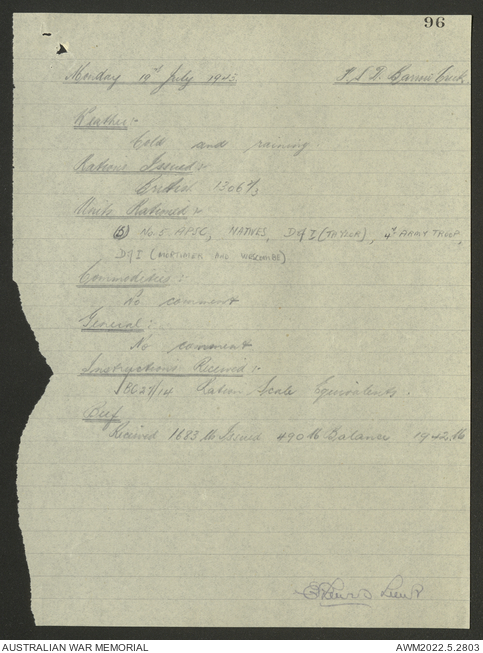 96
Monday 19th July 1943
F.S.D. Barrine Creek
Weather:-
Cold and raining
Rations Issued:-
British 1306 2/3
Units Rationed:-
(5) No. 5. APSC, NATIVES, D of I (TAYLOR), 4th ARMY TROOP,
D of I (MORTIMER AND
Commodities:-
No comment
General:-
No comment
Instructions Received:-
27/14 Ration Scale Equivalents.
Beef
Received 1683 lb Issued 490 lb Balance 1942 lb
Lieut
AUSTRALIAN WAR MEMORIAL
AWM2022.5.2803